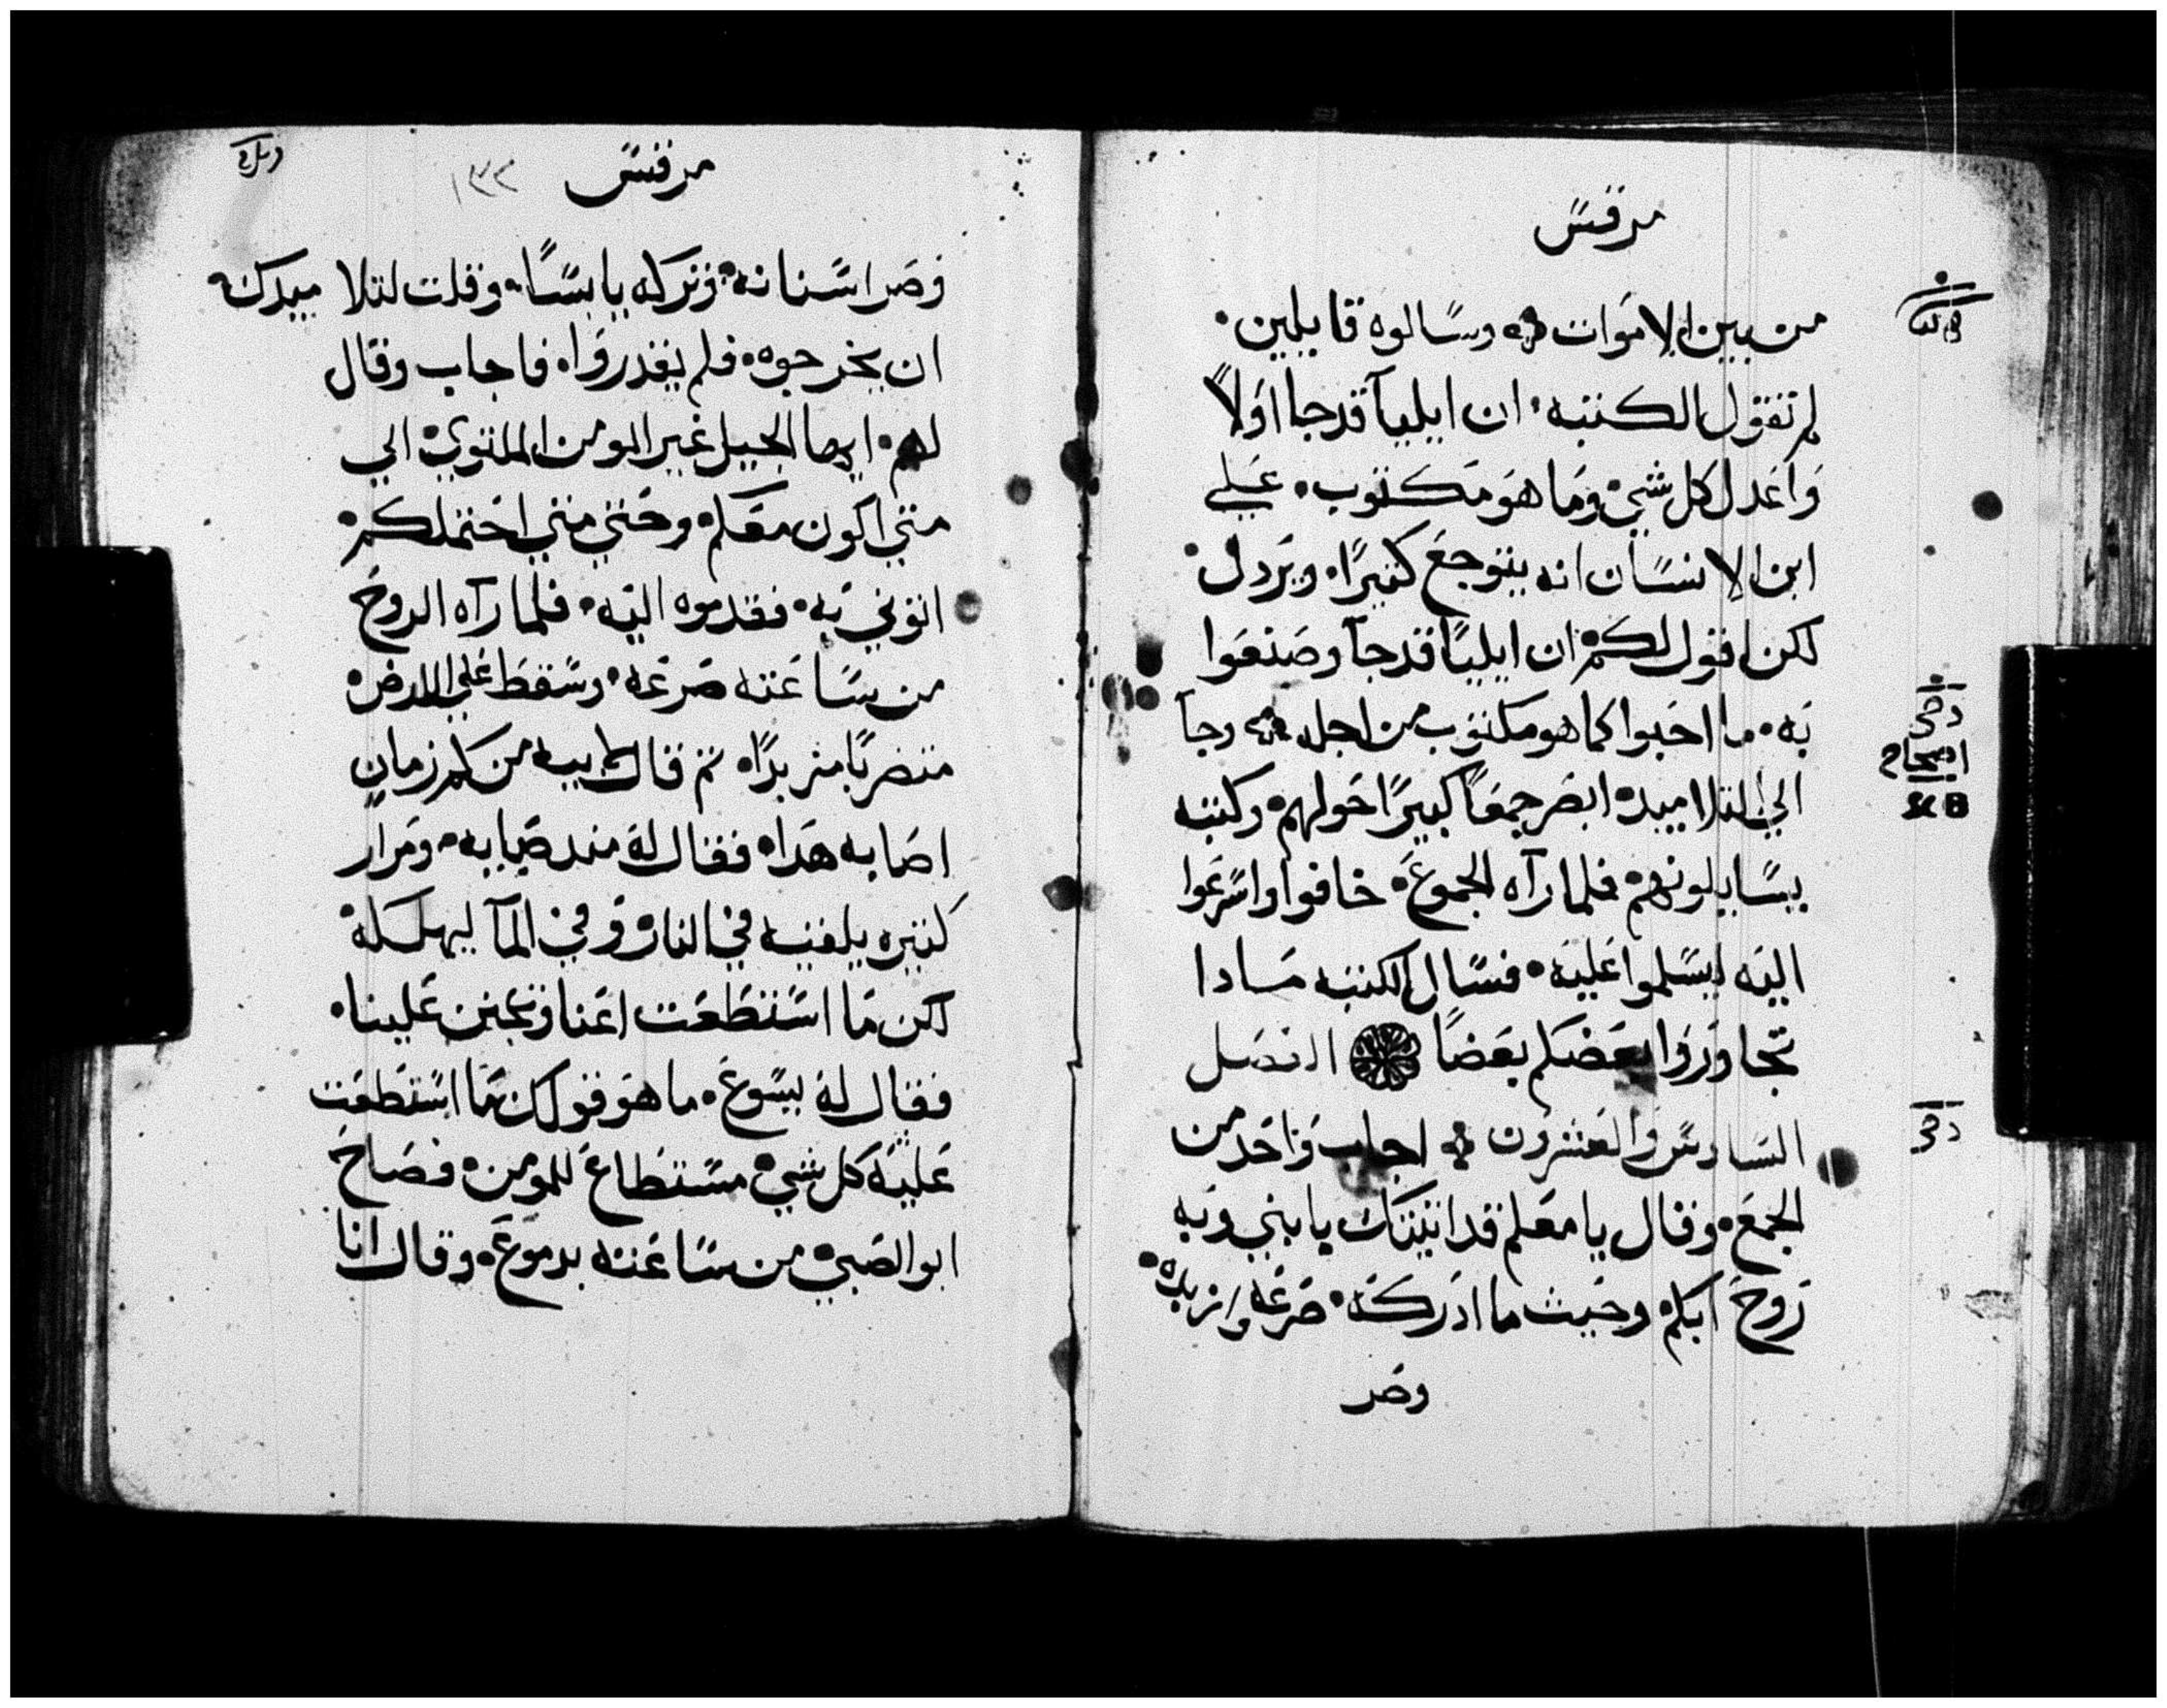 مرقس
من بين الاموات وسالوه قايلين.
لم تقول الكتبه. ان ايليا قد جا اولاً
واعدل كل شي وما هو مكتوب. علي
ابن الانسان انه يتوجع كثيرًا. ويردل.
لكن اقول لكم ان ايليا قد جآ وصنعوا
به. ما احبوا كما هو مكتوب من اجله وجآ
الي التلاميده ابصر جمعاً كبيرًا حولهم. وكتبه
يسايلونهم فلما رآه الجموع. خافوا واسرعوا
اليه ليسلموا عليه. فسال الكتبه مادا
تجاوزوا بعضكم بعضاً الفصل
السادس والعشرون اجاب واحد من
الجمع. وقال يا معلم قد اتيتك يا بني وبه
روح ابكم وحيث ما ادركته. صرعه وازبده.
وصر
اصحاح
مرقس
١٣٢
وصر اسنانه. وتركه يابسًا. وقلت لتلاميدك.
ان يخرجوه. فلم يقدروا. فاجاب وقال
لهم. ايها الجيل غير المومن الملتوي الي
متي اكون معكم. وحتي متي احتملكم.
اتوني به. فقدموه اليه. فلما رآه الروح
من ساعته صرعه. وسقط علي الارض.
متضربًا مزبدًا. تم قال لابيه من كم زمان
اصابه هدا. فقال له مند صبايه. ومرار
كثيره يلقيه في النار وفي المآ ليهلكه
لكن ما استطعت اعنا وتحنن علينا.
فقال له يسوع. ما هو قولك ما استطعت
عليه كل شي مستطاع للمومن. فصاح
ابو الصبي من ساعته بدموع. وقال انا